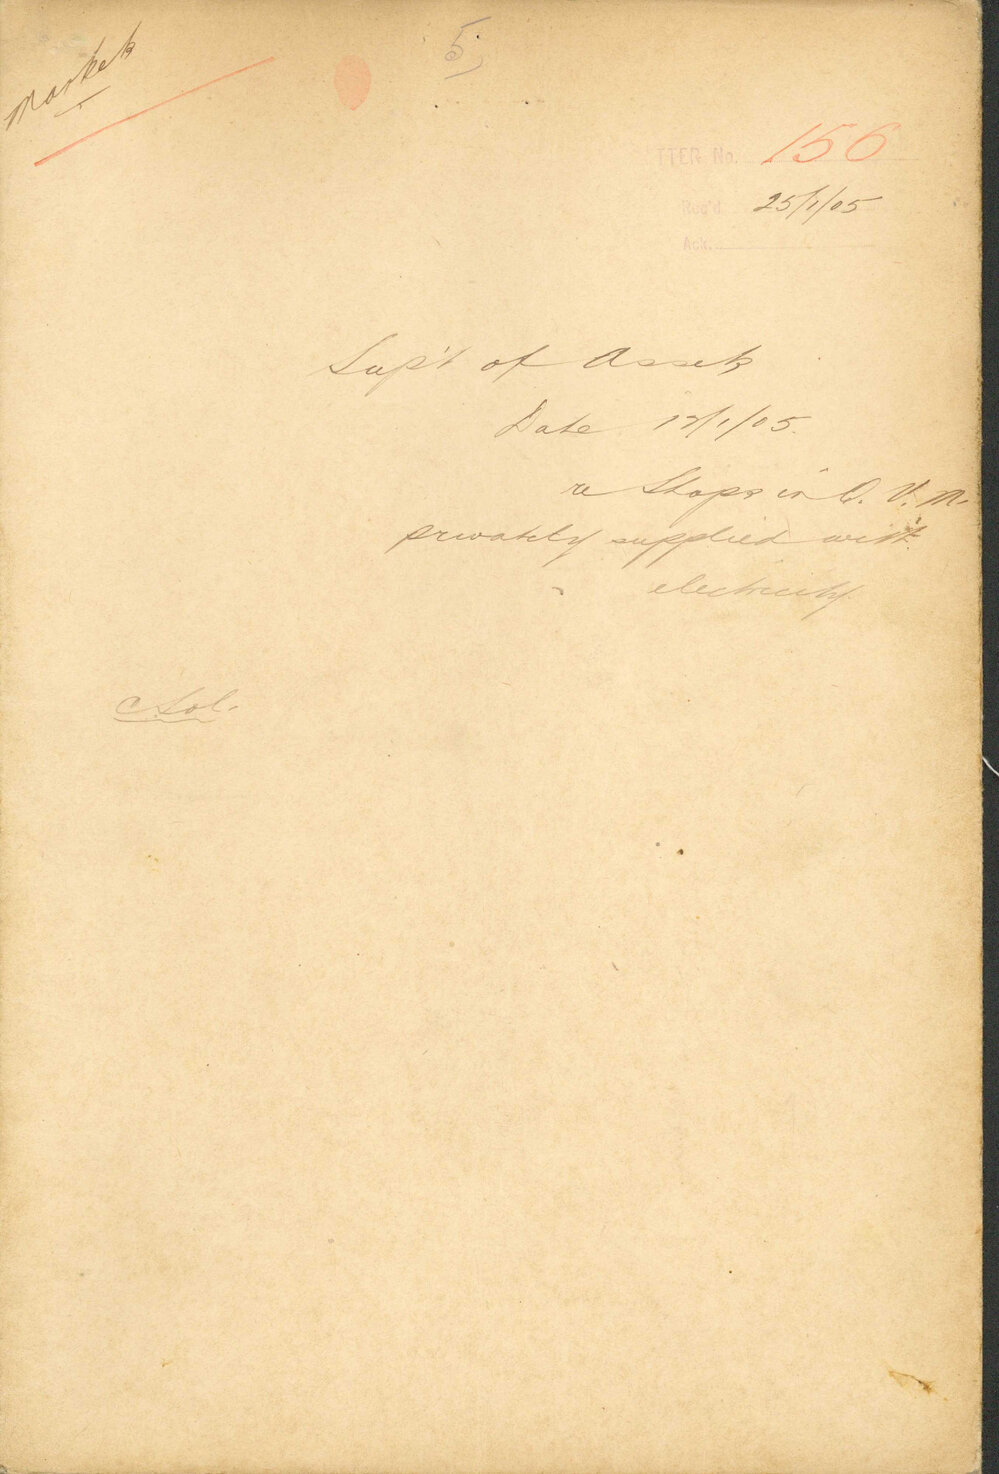 Market
5
TTER No. 156
Rec'd 25/1/05
Ack.
Sup't of Assets
Date 12/1/05.
re Shops in Q. V. M.
privately supplied with
electricity
C. Sol.